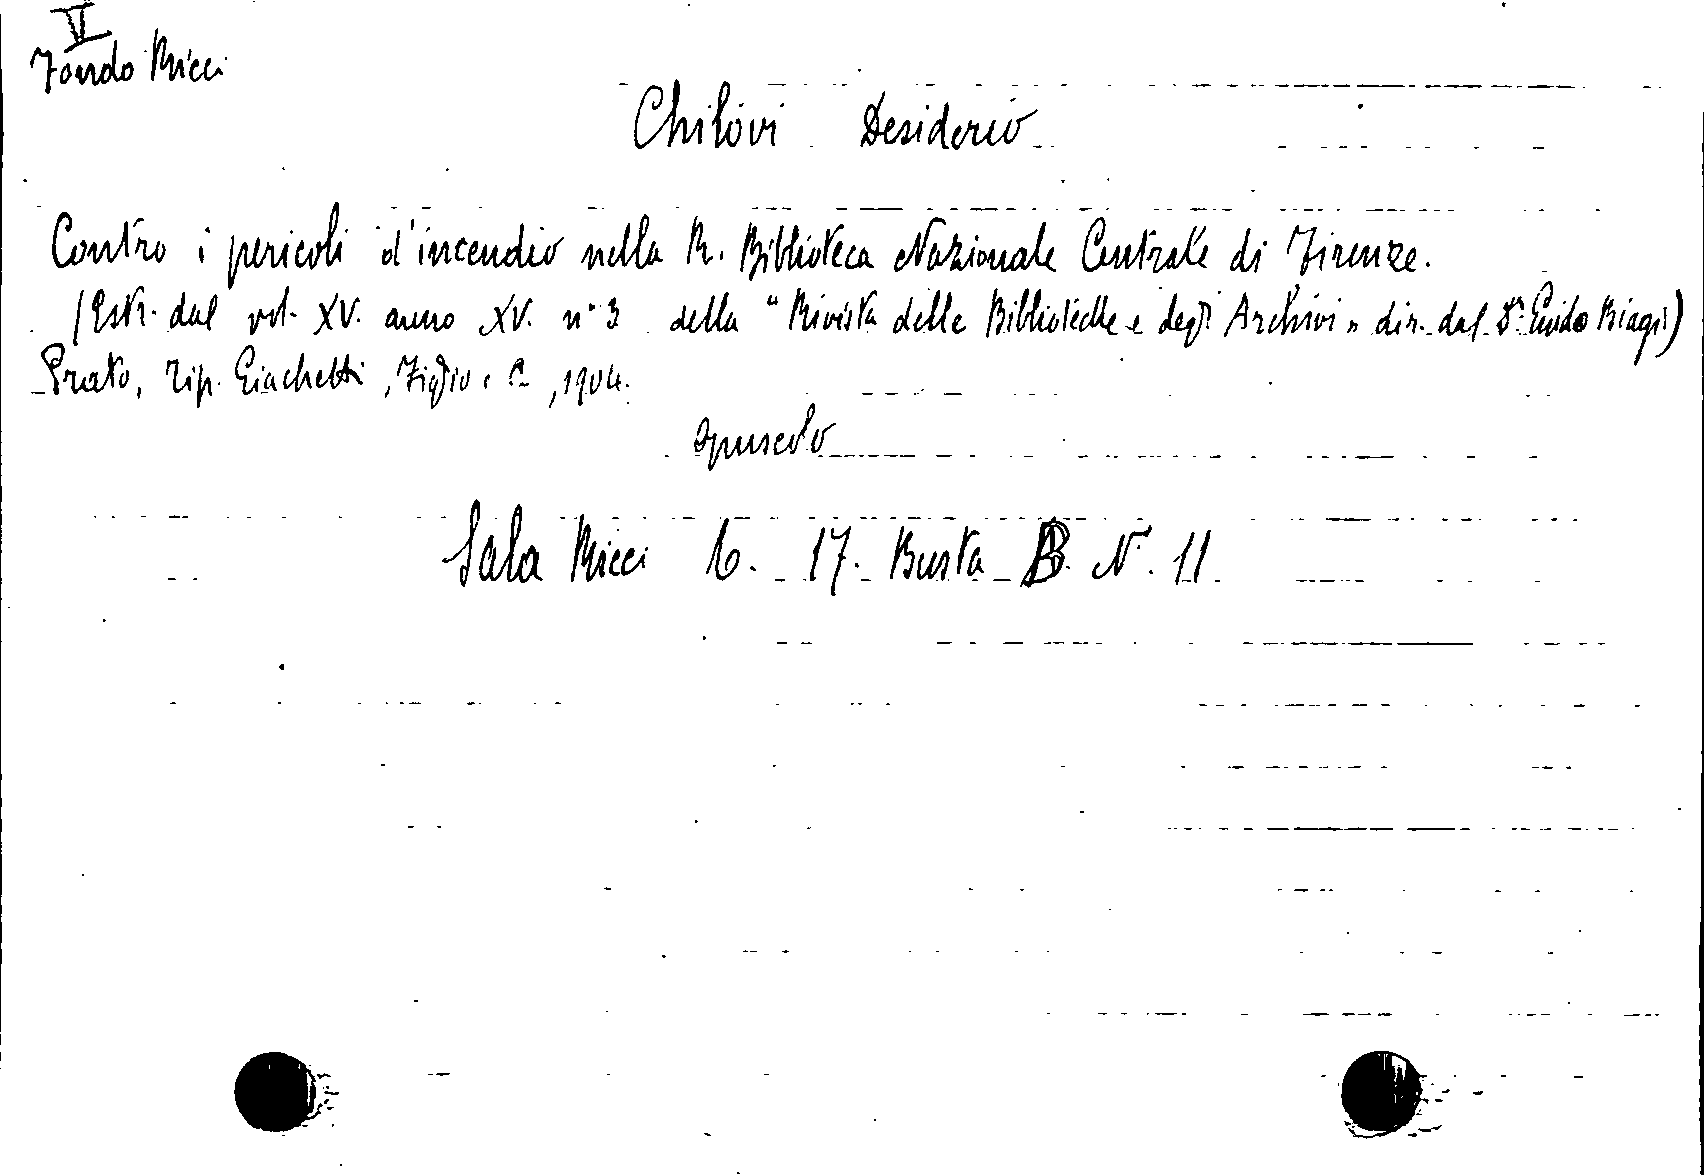 VI
Fondo Ricci
Chilovi Desiderio
Contro i pericoli d'incendio nella R. Biblioteca Nazionale Centrale di Firenze.
(Estr. dal vol. XV. anno XV. n° 3 della "Rivista delle Biblioteche e degli Archivi" dir. dal Dr. Guido Biagi)
Prato, Tip. Giachetti, Figlio e C., 1904.
opuscolo
Sala Ricci 6. 17. Busta B. N. 11